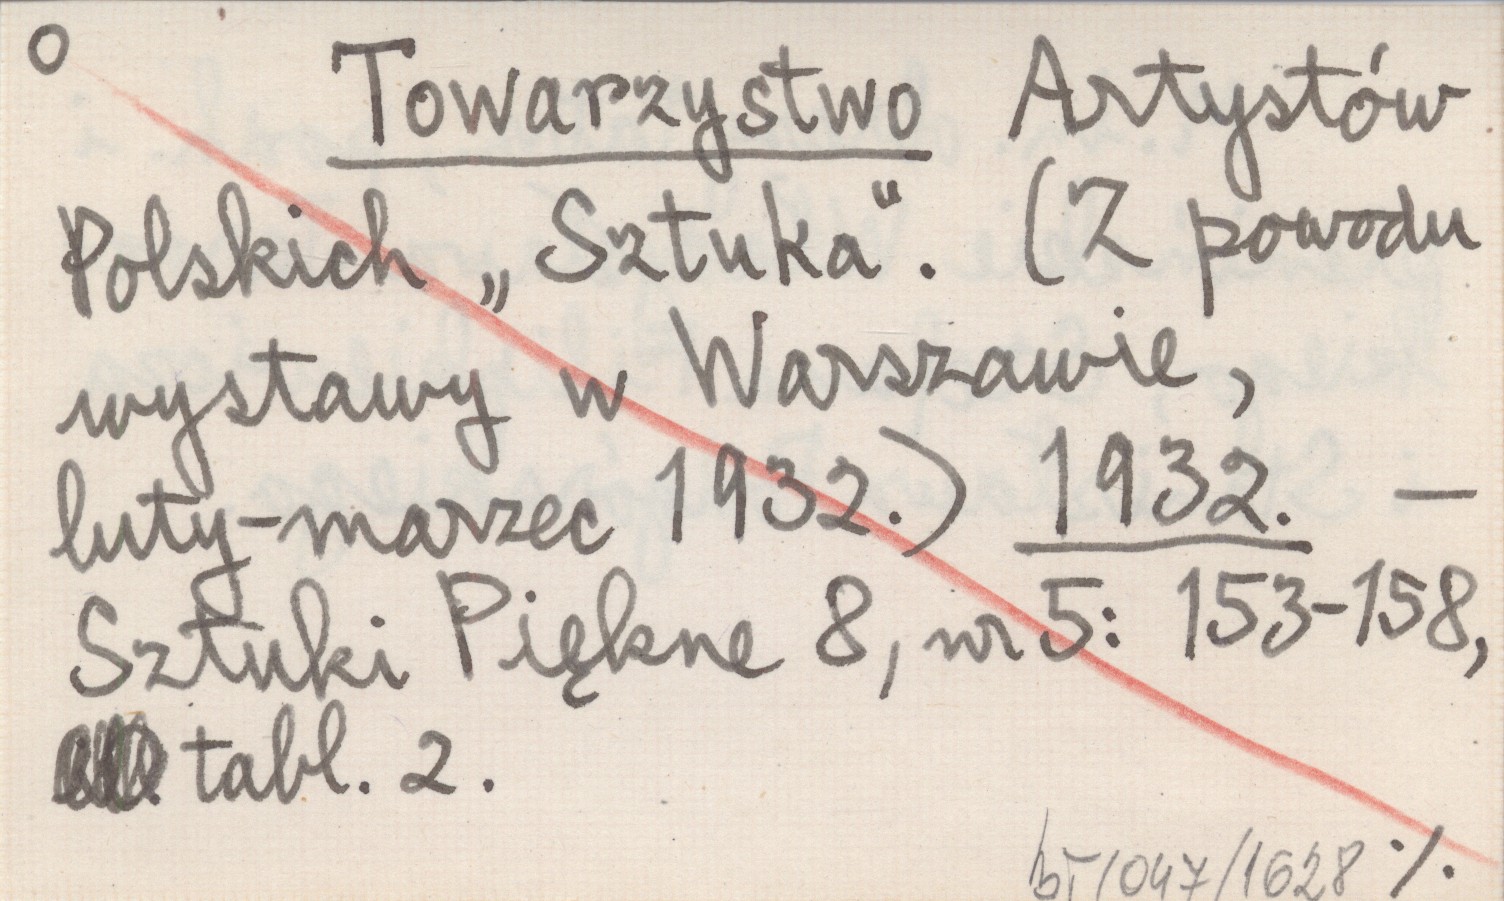 O
Towarzystwo Artystów
Polskich „Sztuka". (Z powodu
wystawy w Warszawie,
luty-marzec 1932.) 1932. —
Sztuki Piękne 8, nr 5: 153-158,
tabl. 2.
bT/047/1628 ·/.